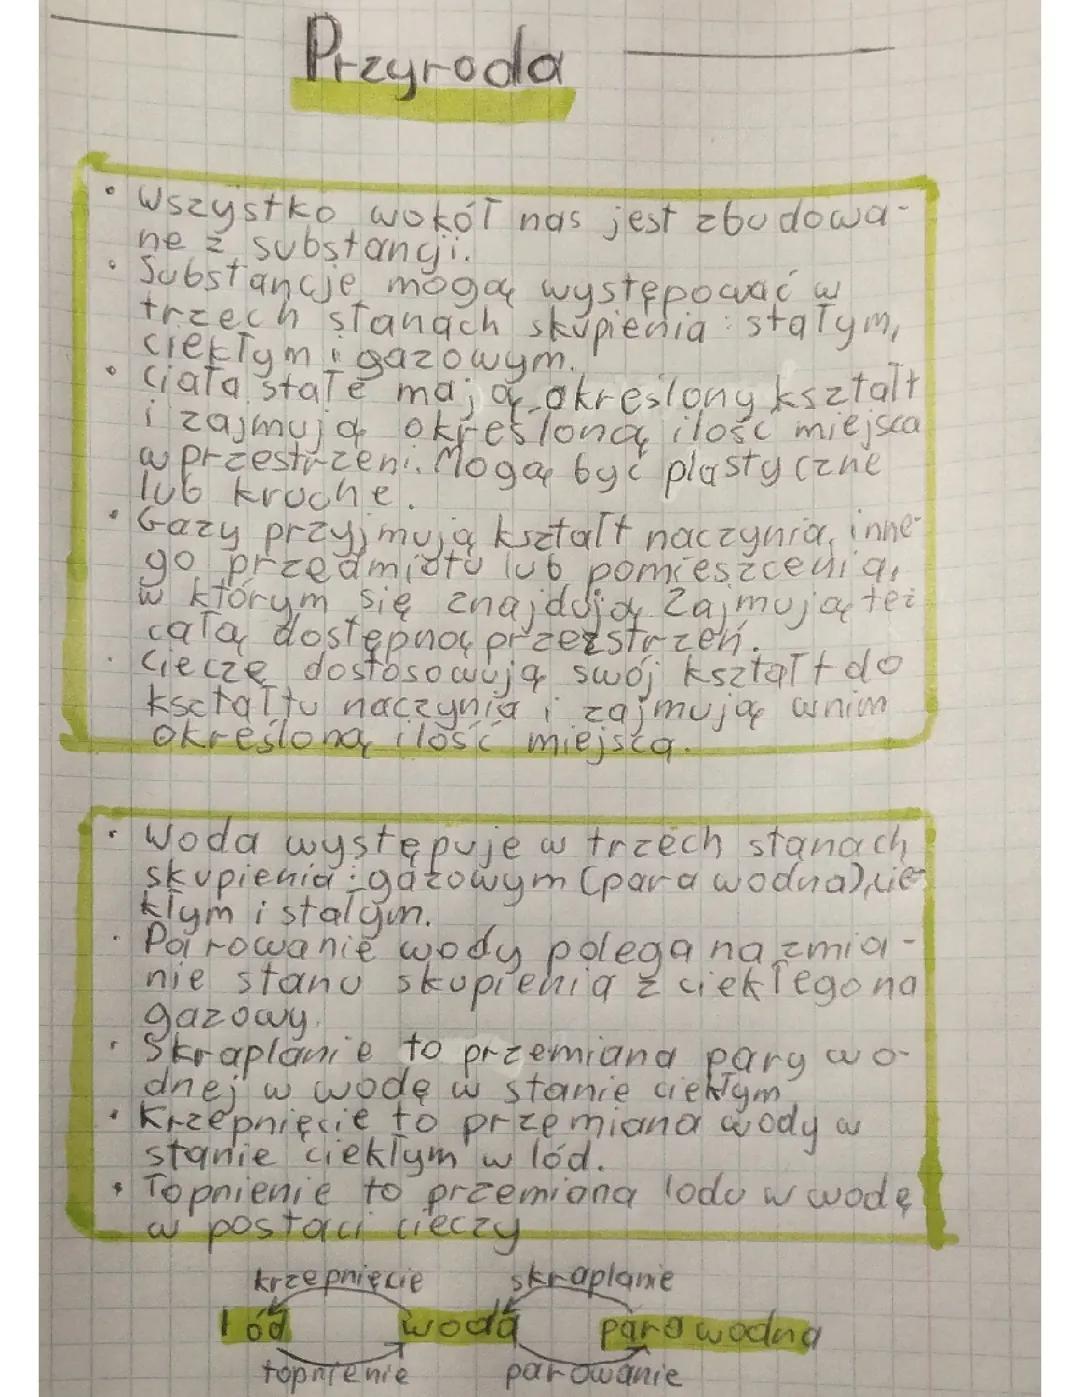 Przyroda
• Wszystko wokół nas jest zbudowa-
ne z substancji.
• Substancje mogą występować w
trzech stanach skupienia: stałym,
ciekłym i gazowym.
• Ciała stałe mają określony kształt
i zajmują określoną ilość miejsca
w przestrzeni. Mogą być plastyczne
lub kruche.
• Gazy przyjmują kształt naczynia, inne-
go przedmiotu lub pomieszczenia,
w którym się znajdują. Zajmują też
całą dostępną przezstrzeń.
• Ciecze dostosowują swój kształt do
kształtu naczynia i zajmują w nim
określoną ilość miejsca.
• Woda występuje w trzech stanach
skupienia: gazowym (para wodna), cie-
kłym i stałym.
• Parowanie wody polega na zmia-
nie stanu skupienia z ciekłego na
gazowy.
• Skraplanie to przemiana pary wo-
dnej w wodę w stanie ciekłym
• Krzepnięcie to przemiana wody w
stanie ciekłym w lód.
• Topnienie to przemiana lodu w wodę
w postaci cieczy
krzepnięcie skraplanie
lód woda para wodna
topnienie parowanie